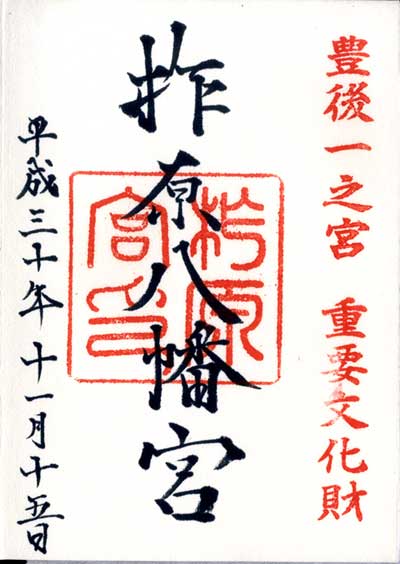 豊後一之宮 重要文化財
柞原八幡宮
柞原宮印
平成三十年十一月十五日